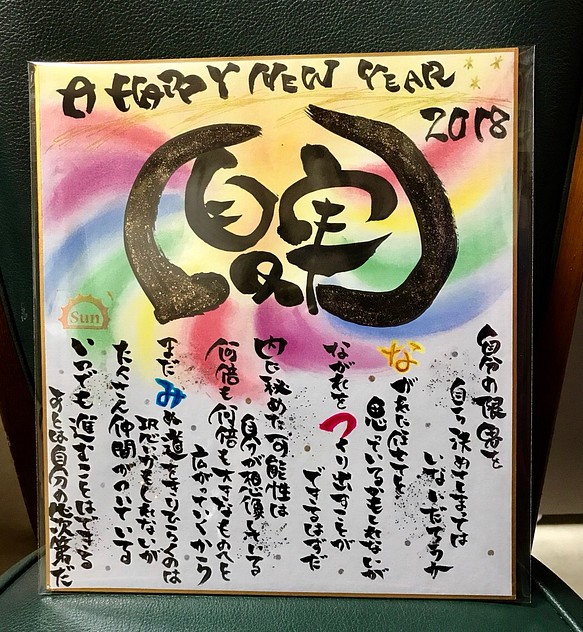 A HAPPY NEW YEAR
2018
夏実
Sun
自分の限界を
自ら決めてしまっては
いないだろうか
ながれに任せてと
思っているかもしれないが
ながれを
つくり出すことが
できるはずだ
内に秘めた可能性は
自分が想像している
何倍も何倍も大きなものへと
広がっていくから
まだみぬ道をきりひらくのは
恐いかもしれないが
たくさん仲間がついている
いつでも進むことはできる
あとは自分の心次第だ